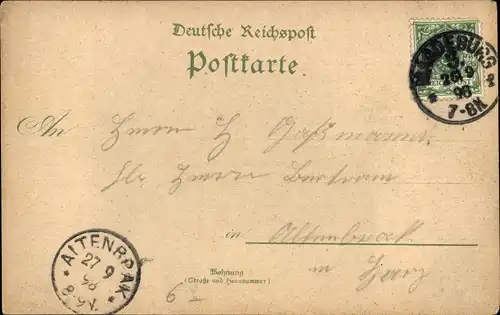 Deutsche Reichspost
Postkarte
MAGDEBURG
26 9
96
7-8N
An Herrn H Gaßmann
Herrn Bertram
in Altenbrak
Harz
Wohnung
(Straße und Hausnummer)
ALTENBRAK
27 9
96